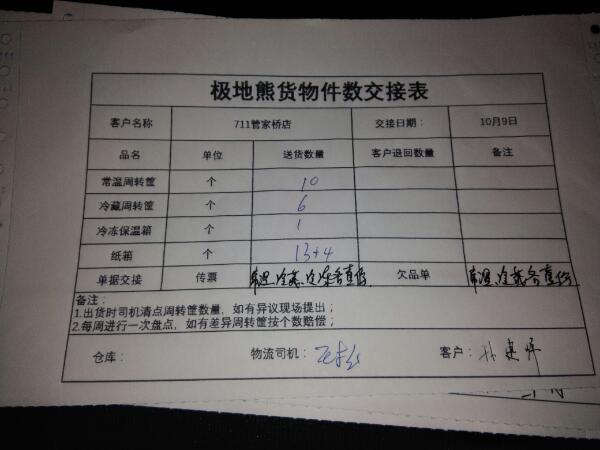 极地熊货物件数交接表
客户名称 711管家桥店 交接日期： 10月9日
品名 单位 送货数量 客户退回数量 备注
常温周转筐 个 10
冷藏周转筐 个 6
冷冻保温箱 个 1
纸箱 个 13+4
单据交接 传票 常温、冷藏、冷冻各壹份 欠品单 常温、冷藏各壹份
备注：
1.出货时司机清点周转筐数量，如有异议现场提出；
2.每周进行一次盘点，如有差异周转筐按个数赔偿；
仓库： 物流司机： 客户：